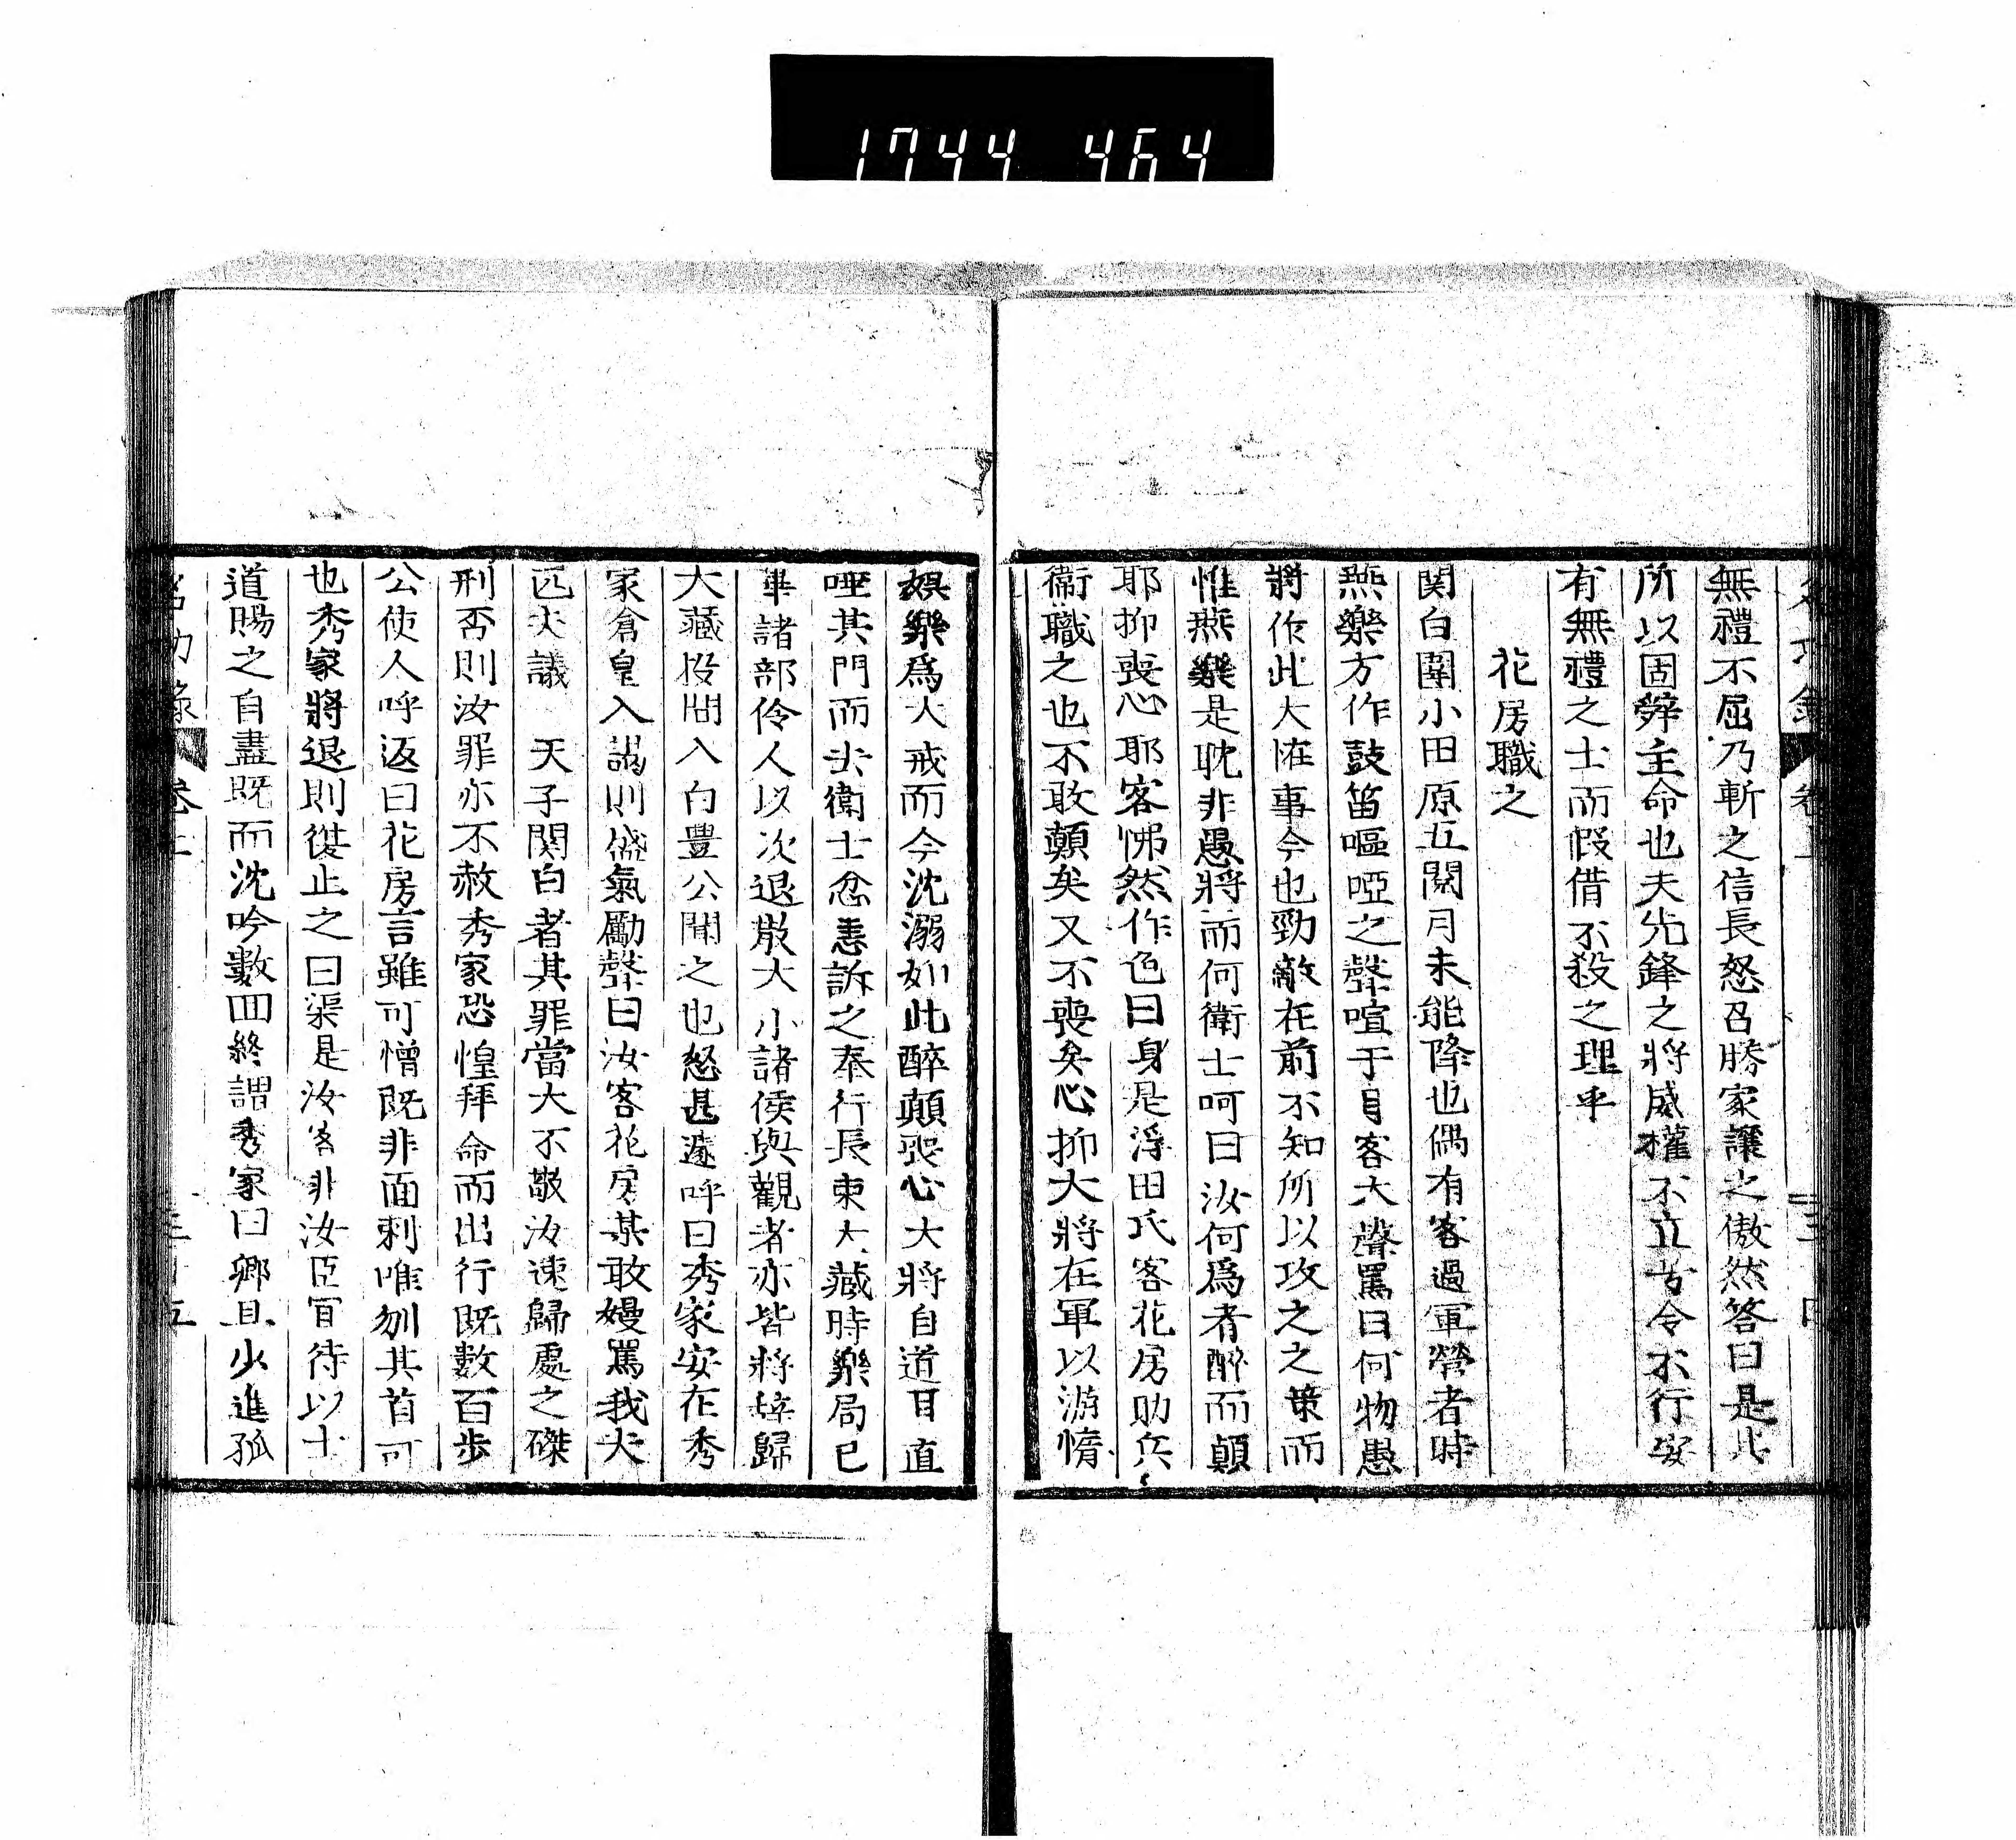 1744 464
無禮不屈乃斬之信長怒召勝家讓之傲然答曰是此
所以固辤主命也夫先鋒之將威權不立廿令不行安
有無禮之士而假借不殺之理乎
花房職之
関白圍小田原五閱月未能降也偶有客過軍營者時
燕樂方作鼓笛嘔啞之聲喧于目客大聲罵曰何物愚
將作此大怪事今也勁敵在前不知所以攻之之策而
惟燕樂是耽非愚將而何衛士呵曰汝何爲者醉而顛
耶抑喪心耶客怫然作色曰身是浮田氏客花房助兵
衞職之也不敢顛矣又不喪矣心抑大將在軍以游惰
娯樂爲大戒而今沈溺如此醉顛喪心大將自道耳直
唾其門而去衛士忿恚訴之奉行長束大藏時樂局已
畢諸部伶人以次退散大小諸侯與觀者亦皆將辞歸
大藏投間入白豊公聞之也怒甚遽呼曰秀家安在秀
家倉皇入謁則盛氣勵聲曰汝客花房某敢嫚罵我夫
匹夫議　天子関白者其罪當大不敬汝速歸處之磔
刑否則汝罪亦不赦秀家恐惶拜命而出行既數百步
公使人呼返曰花房言雖可憎既非面刺唯刎其首可
也秀家將退則復止之曰渠是汝客非汝臣宜待以士
道賜之自盡既而沈吟數回終謂秀家曰卿且少進孤
名功錄　卷上　三十五